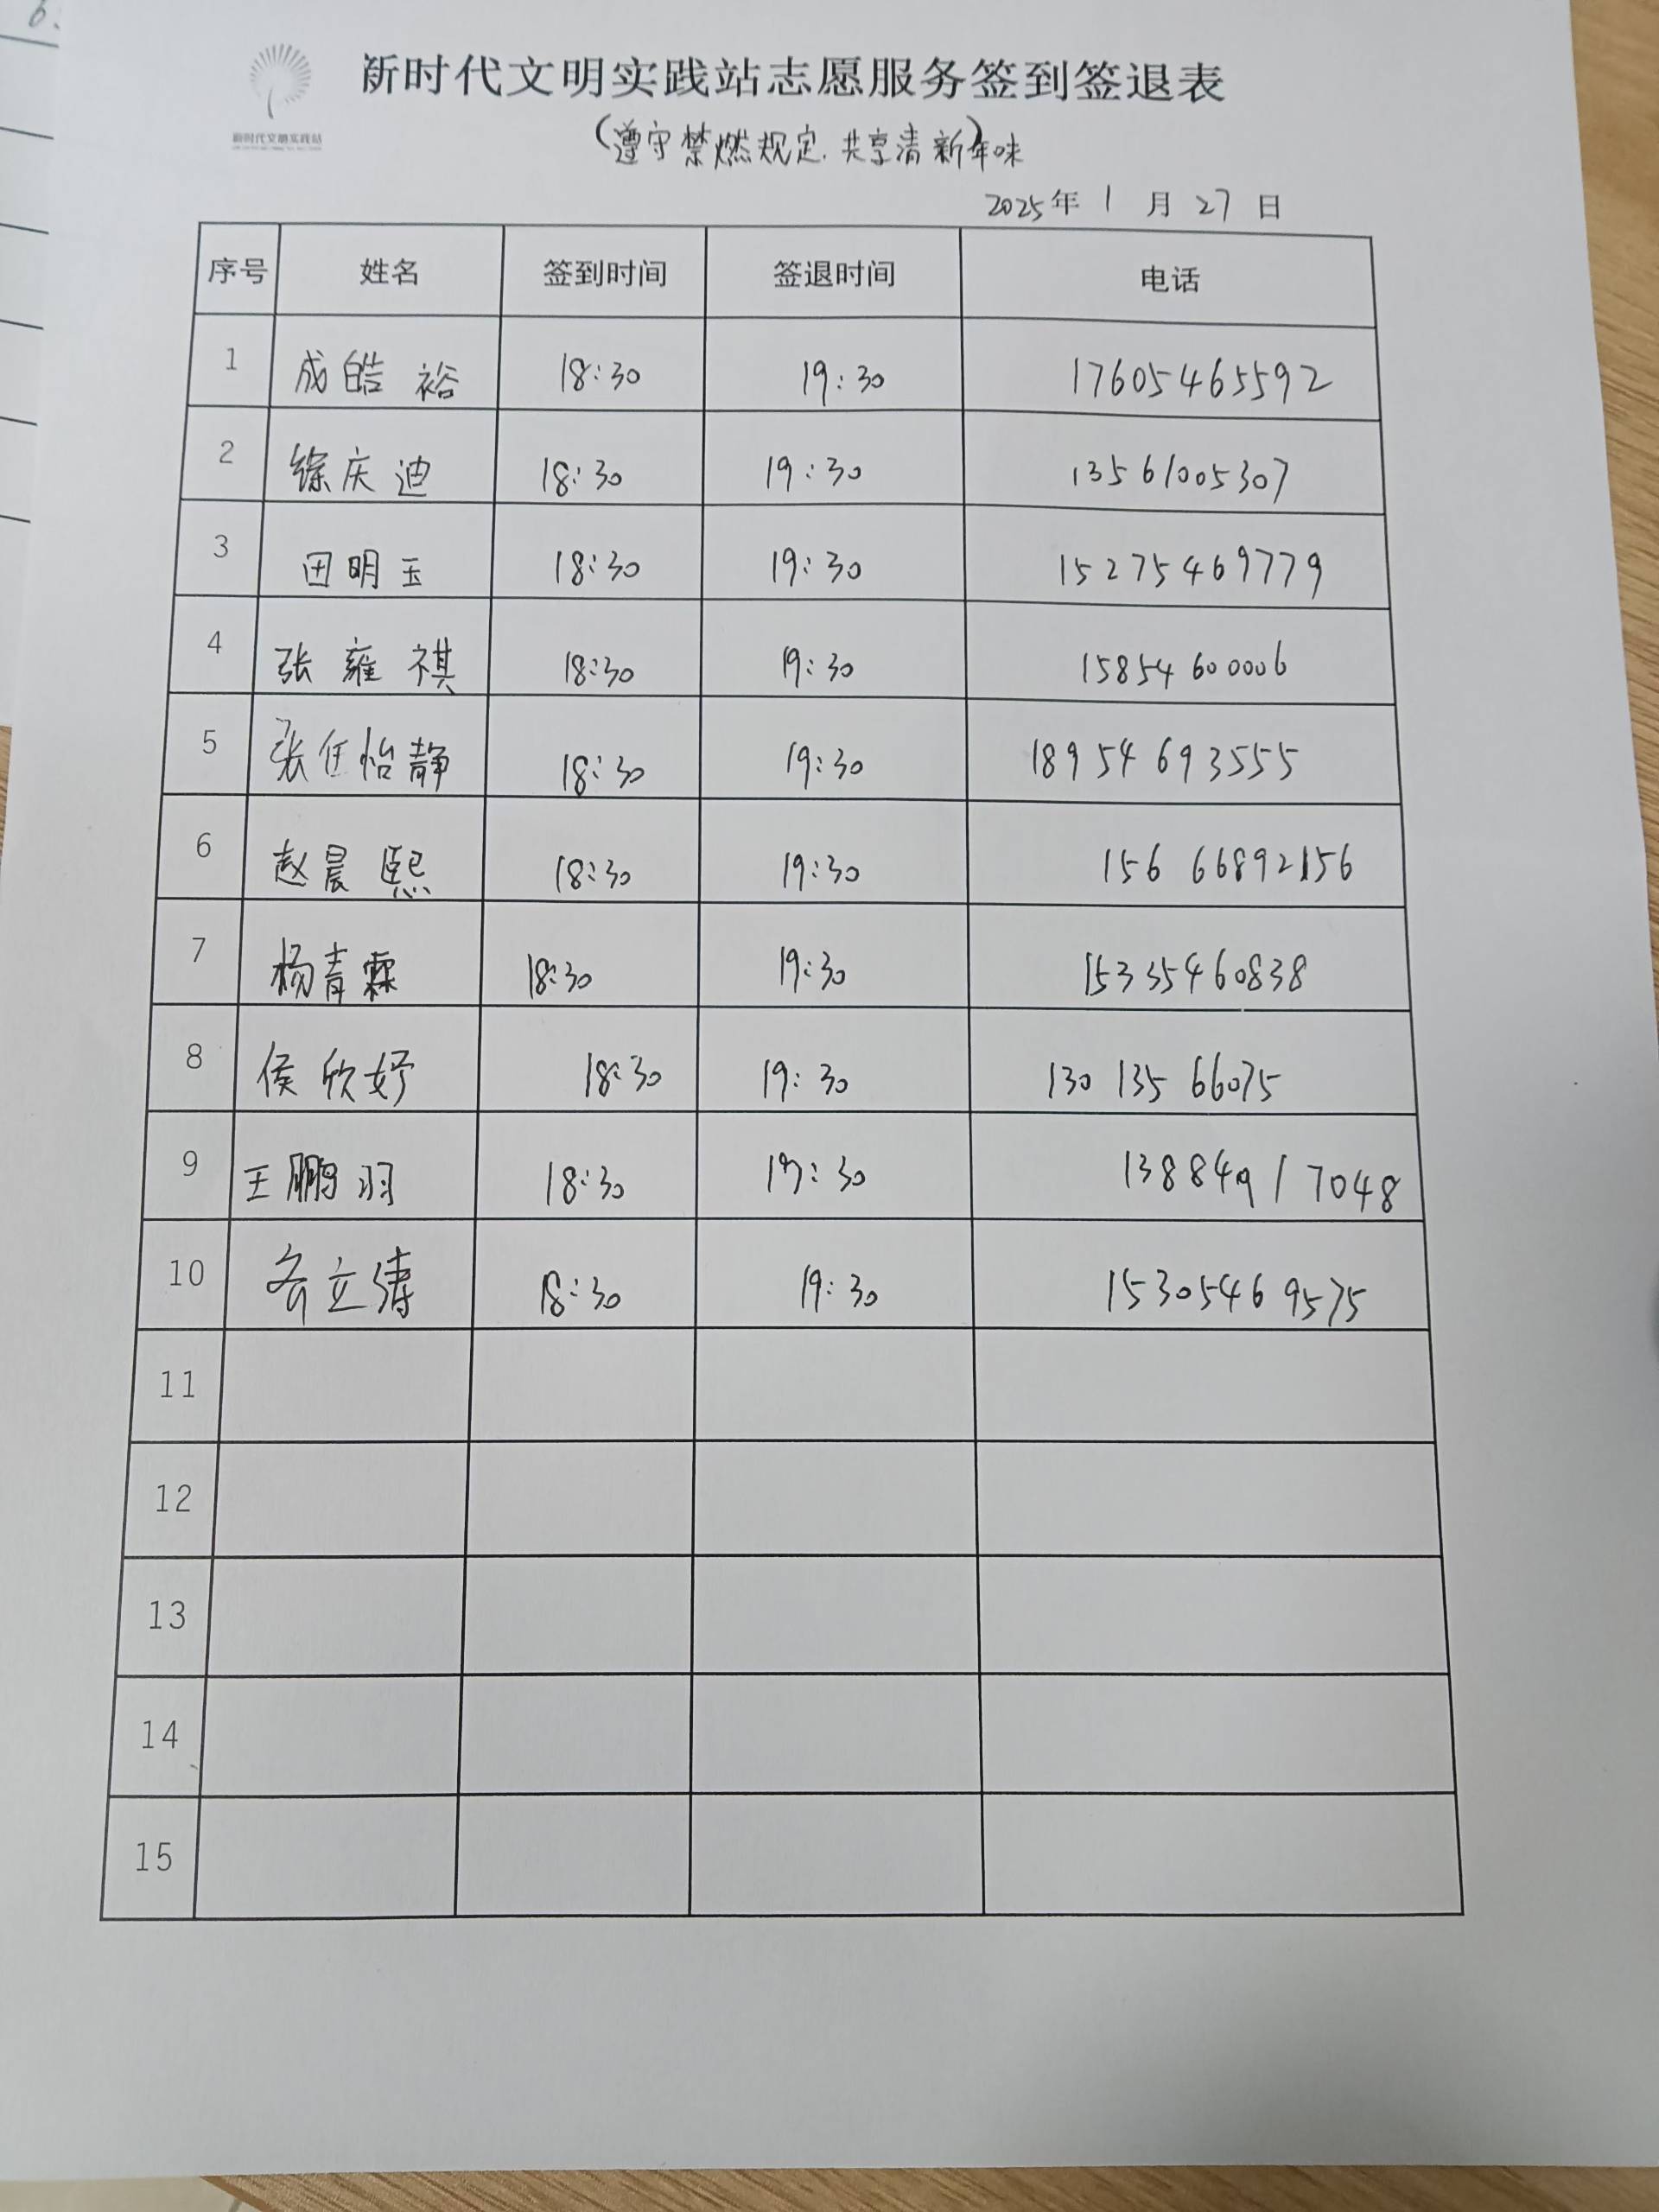 6.
新时代文明实践站志愿服务签到签退表
新时代文明实践站
(遵守禁燃规定.共享清新)年味
2025年 1 月 27 日
序号 姓名 签到时间 签退时间 电话
1 成皓裕 18:30 19:30 17605465592
2 徐庆迪 18:30 19:30 13561005307
3 田明玉 18:30 19:30 15275469779
4 张雍祺 18:30 19:30 15854600006
5 张任怡静 18:30 19:30 18954693555
6 赵晨熙 18:30 19:30 15666892156
7 杨青霖 18:30 19:30 15335460838
8 侯欣妤 18:30 19:30 13013566075
9 王鹏羽 18:30 19:30 13884917048
10 立涛 18:30 19:30 15305469575
11
12
13
14
15